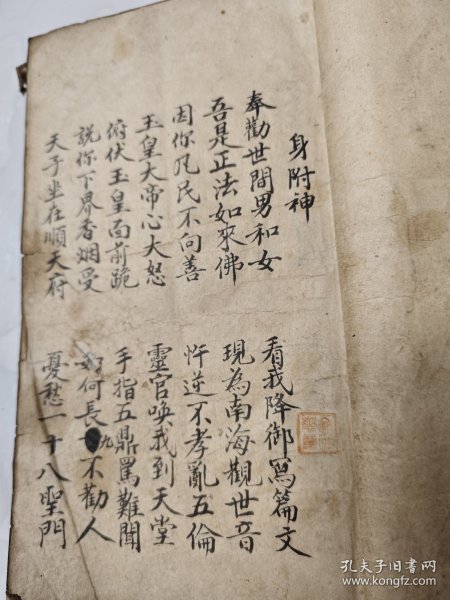 身附神
奉勸世間男和女 看我降御冩篇文
吾是正法如來佛 現為南海觀世音
因你凡民不向善 忤逆不孝亂五倫
玉皇大帝心大怒 靈官喚我到天堂
俯伏玉皇面前跪 手指五鼎罵難聞
說你下界香烟受 如何長九不勸人
天子坐在順天府 憂愁一十八聖門
孔夫子旧书网
www.kongfz.com